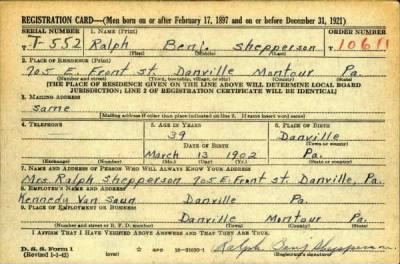 REGISTRATION CARD—(Men born on or after February 17, 1897 and on or before December 31, 1921)
SERIAL NUMBER 1. NAME (Print) ORDER NUMBER
T-552 Ralph Benj. Shepperson 10611
(First) (Middle) (Last)
2. PLACE OF RESIDENCE (Print)
705 E. Front st. Danville Montour Pa.
(Number and street) (Town, township, village, or city) (County) (State)
[THE PLACE OF RESIDENCE GIVEN ON THE LINE ABOVE WILL DETERMINE LOCAL BOARD
JURISDICTION; LINE 2 OF REGISTRATION CERTIFICATE WILL BE IDENTICAL]
3. MAILING ADDRESS
Same
[Mailing address if other than place indicated on line 2. If same insert word same]
4. TELEPHONE 5. AGE IN YEARS 6. PLACE OF BIRTH
39 Danville
DATE OF BIRTH (Town or county)
March 13 1902 Pa.
(Exchange) (Number) (Mo.) (Day) (Yr.) (State or country)
7. NAME AND ADDRESS OF PERSON WHO WILL ALWAYS KNOW YOUR ADDRESS
Mrs Ralph Shepperson 705 E. Front st. Danville, Pa.
8. EMPLOYER'S NAME AND ADDRESS
Kennedy Van Saun Danville Pa.
9. PLACE OF EMPLOYMENT OR BUSINESS
Danville Montour Pa.
(Number and street or R. F. D. number) (Town) (County) (State)
I AFFIRM THAT I HAVE VERIFIED ABOVE ANSWERS AND THAT THEY ARE TRUE.
D. S. S. Form 1
(Revised 1-1-42) GPO 16—21630-1 Ralph Benj Shepperson
(Registrant's signature)